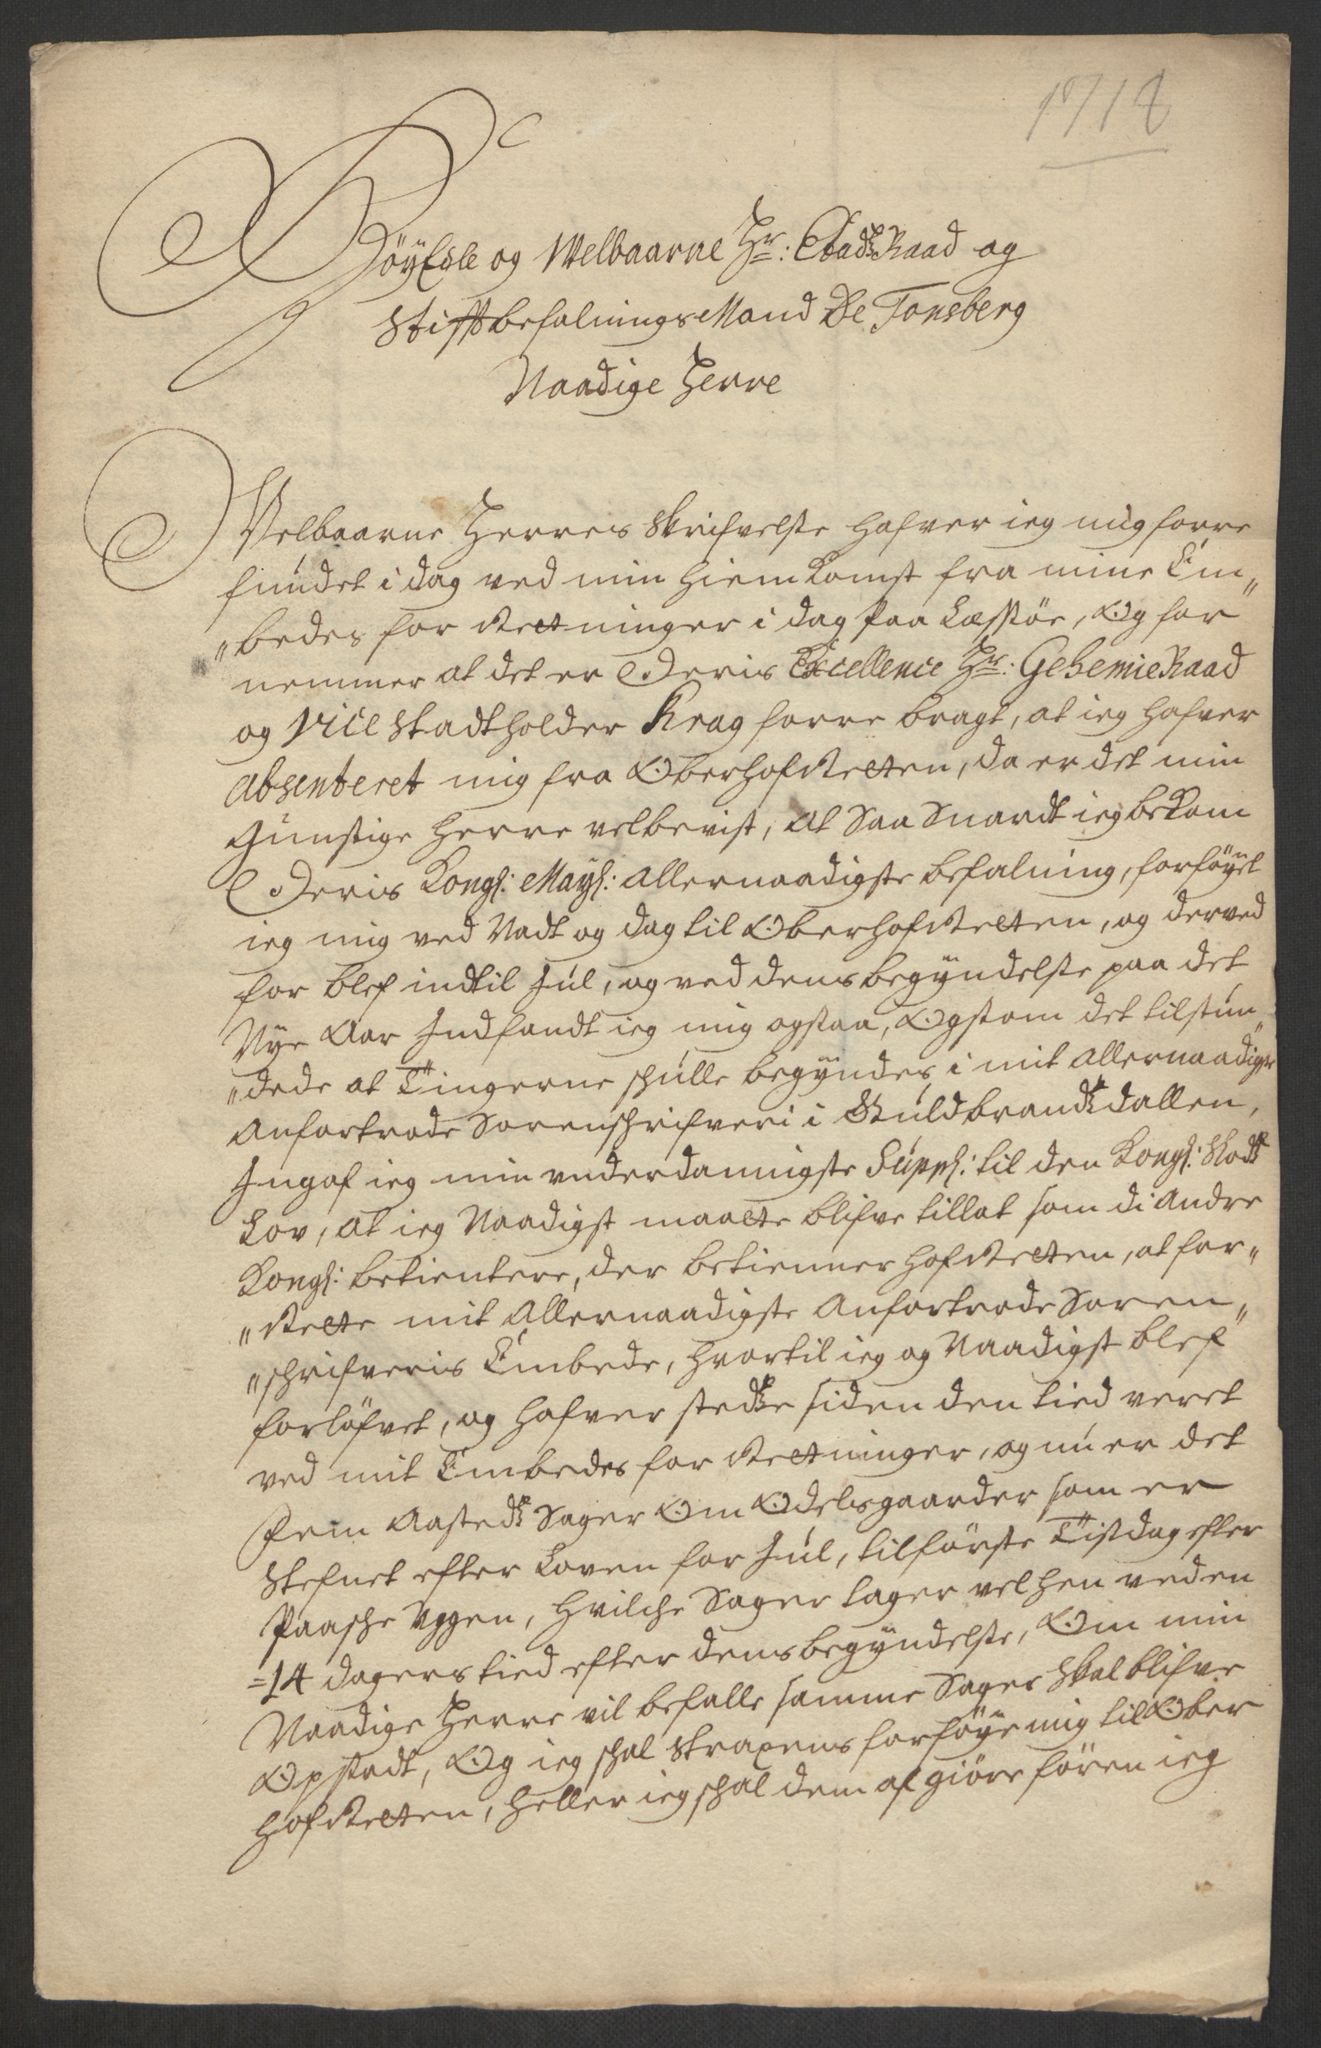 1718
HöyEdle og Welbaarne Hr: Etads Raad og
Stiftbefalnings Mand De Tonsberg
Naadige Herre
Velbaarne Herres Skrifvelse hafver ieg mig forre
fundet i dag ved min hiemkomst fra mine Em„
„bedes for Retninger i dag paa Lessöe, Og for„
nemmer at det er Deris Excellence Hr: GehemieRaad
og Vice Stadtholder Krag forre bragt, at ieg hafver
Absenteret mig fra OberhofRetten, da er det min
Gunstige Herre velbevist, at saa snardt ieg bekom
Deris Kongl: Mayt: Allernaadigste befalning, forföyet
ieg mig ved Nadt og dag til OberhofRetten, og derved
for blef indtil Jul, og ved dens begyndelse paa det
Nye Aar Indfandt ieg mig ogsaa, Ogsom det tilstun„
„dede at Tingerne schulle begyndes i mit Allernaadigst
Anfortrode Sorenschrifveri i Guldbrandsdallen,
Ingaf ieg min underdannigste Suppl: til den Kongl: Slods
Lov, at ieg Naadigst maatte blifve tillat som di Andre
Kongl: betientere, der betienner hofRetten, at for„
„Rette mit Allernaadigste Anfortrode Soren„
„schrifveris Embede, hvortil ieg og Naadigst blef
forlöfvet, og hafver stedse siden den tied veret
ved mit Embedes for Retninger, og nu er det
Fem Aasteds Sager Om Odelsgaarder som er
Stefnet efter Loven for Jul, tilförste Tisdag efter
Paasche Uggen, hvilche Sager tager vel hen ved en
=14 dagers tied efter dens begyndelse, Om min
Naadige Herre vil befalle samme Sager Skal blifve
Opsadt, Og ieg schal Straxens forföye mig til Ober
hofRetten, heller ieg schal dem af giöre fören ieg